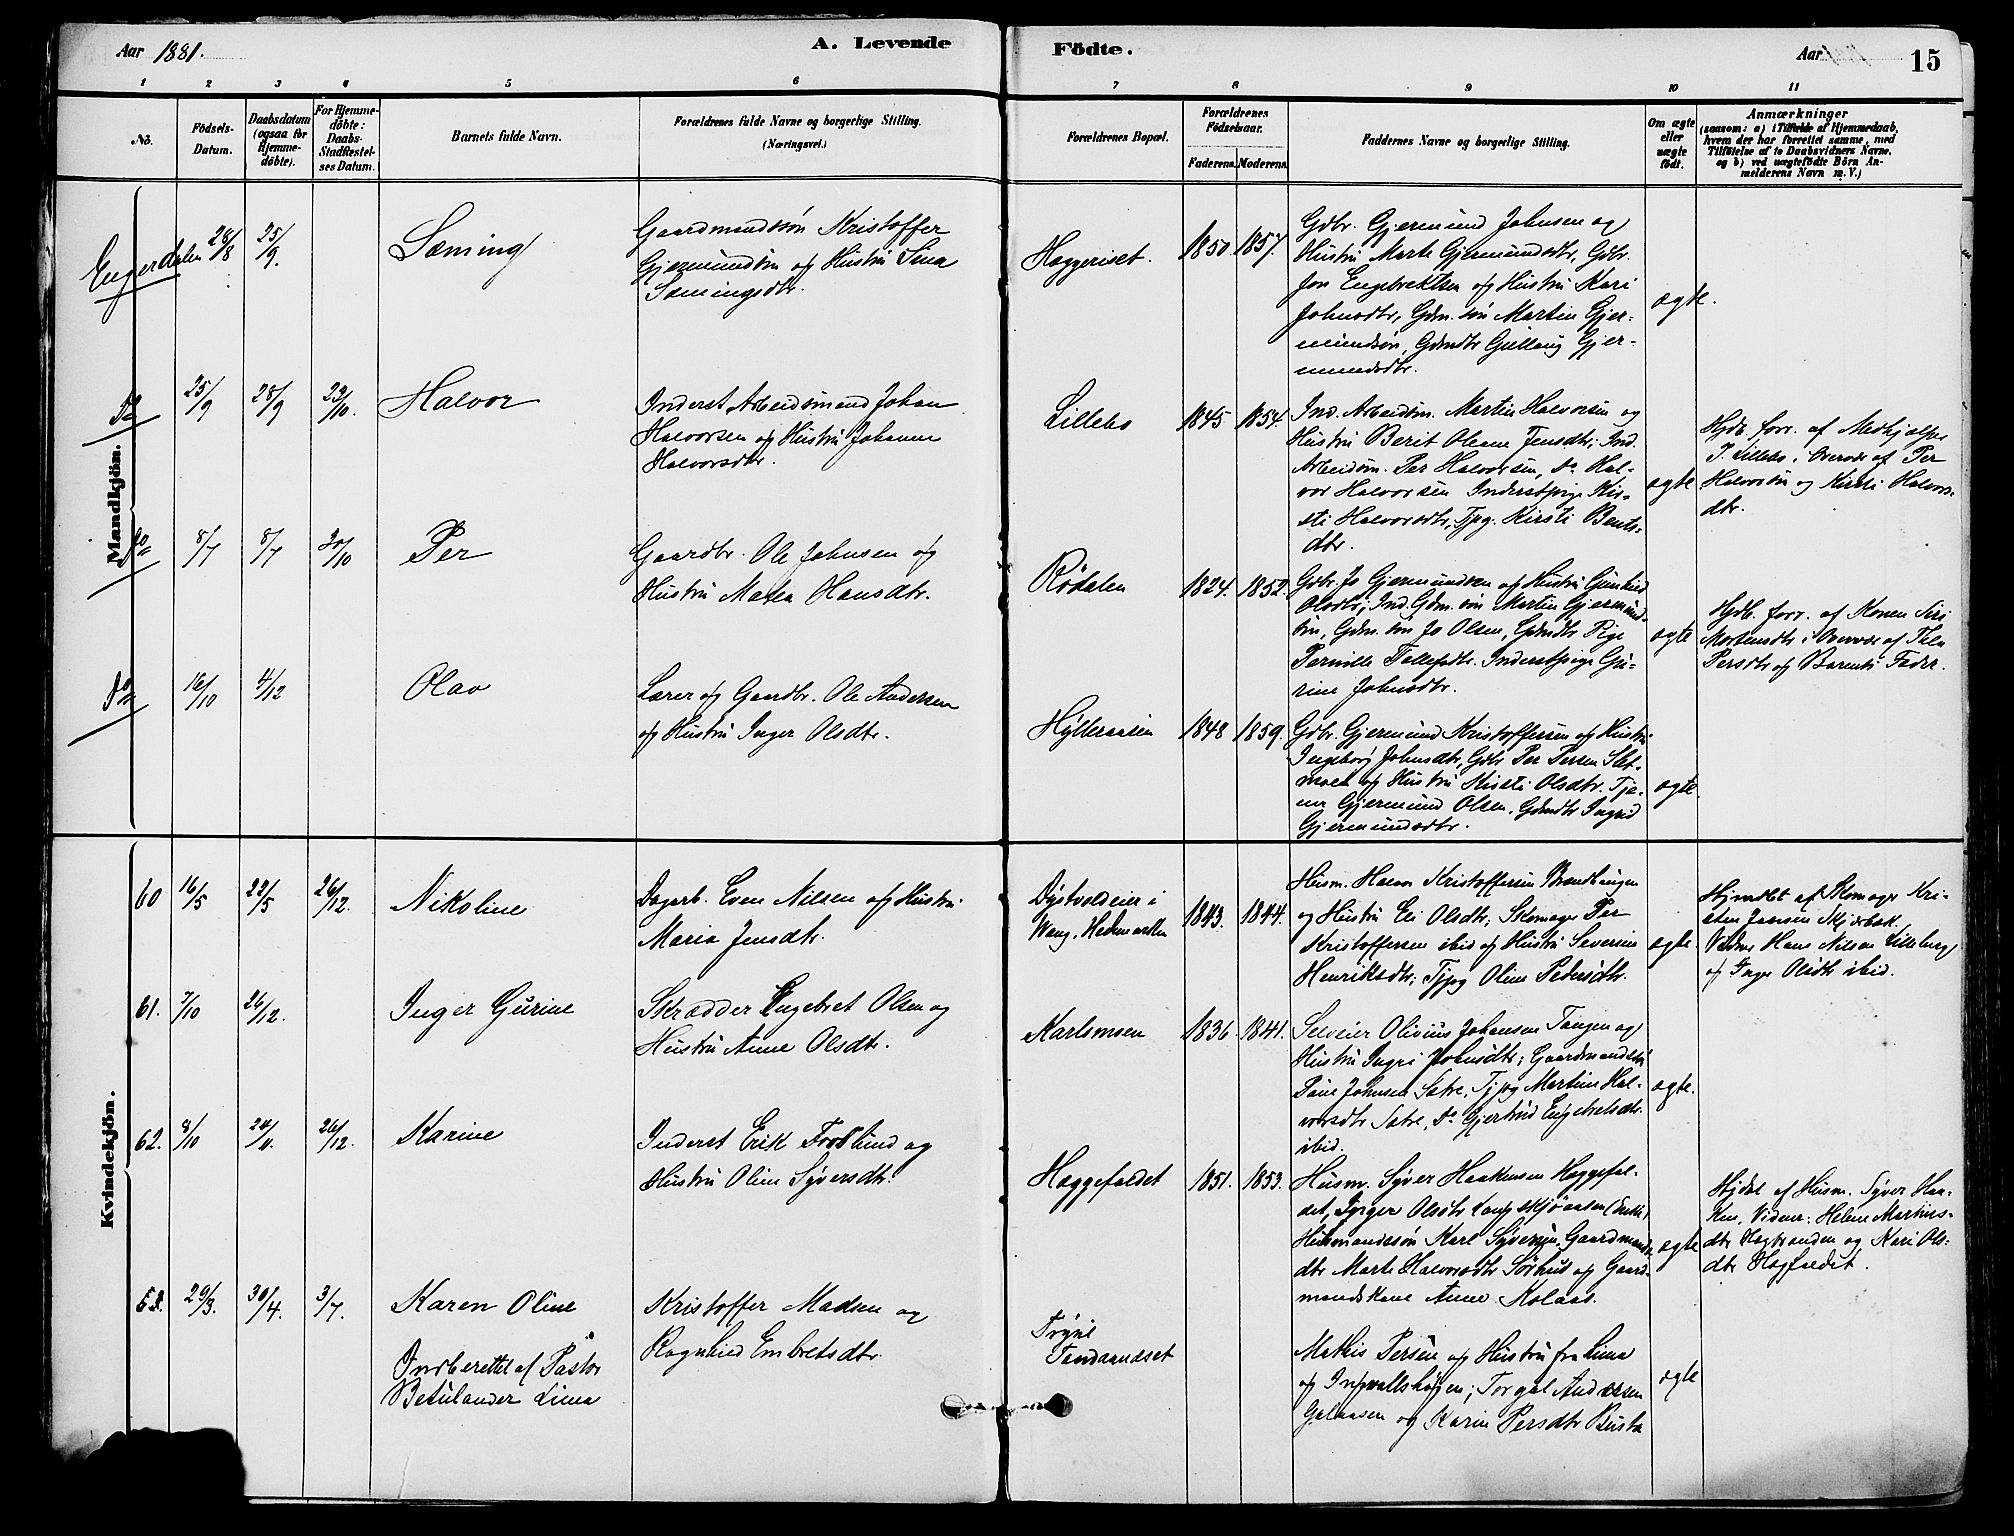 Aar 1881.
A. Levende
Fødte.
Aar
15
1 2 3 4 5 6 7 8 9 10 11
No.
Fødsels-
Datum.
Daabsdatum
(ogsaa for
Hjemme-
døbte).
For Hjemme-
døbte:
Daabs-
Stadfestel-
ses Datum.
Barnets fulde Navn.
Forældrenes fulde Navne og borgerlige Stilling.
(Næringsvei.)
Forældrenes Bopæl.
Forældrenes
Fødselsaar.
Faderens. Moderens.
Faddernes Navne og borgerlige Stilling.
Om ægte
eller
uægte
født.
Anmærkninger
(saasom: a) i Tilfælde af Hjemmedaab,
hvem der har forrettet samme, med
Tilføielse af to Daabsvidners Navne,
og b) ved uægtefødte Børn An-
melderens Navn m. V.)
Mandkjøn.
Engerdalen 28/8 25/9.
Sæming
Gaardmandssøn Kristoffer
Gjermundsøn og Hustru Sina
Sæmingsdtr.
Heggeriset.
1850. 1857.
Gdbr. Gjermund Johnsen og
Hustru Marte Gjermundsdtr, Gdbr.
Jon Engebrektsen og Hustru Kari
Johnsdtr, Gdm. søn Martin Gjer-
mundsøn, Gdmdtr Gullaug Gjer-
mundsdtr.
ægte.
Do 25/9 28/9 23/10.
Halvor
Inderst Arbeidsmand Johan
Halvorsen og Hustru Johanne
Halvorsdtr.
Lillebo
1845 1854.
Ind. Arbeidsm. Martin Halvorsen og
Hustru Berit Oleane Jensdtr, Ind.
Arbeidsm. Per Halvorsen, Do Hal-
vor Halvorsen Inderstpige Kir-
sti Halvorsdtr, Tjpg. Kirsti Bents-
dtr.
ægte
Hjdb. forr. af Medhjælper
J. Lillebo i Overvær af Per
Halvorsøn og Kirsti Halvors-
dtr.
Do 8/7 8/7 30/10
Per
Gaardbr. Ole Johnsen og
Hustru Matea Hansdtr.
Rødalen
1824. 1852.
Gdbr. Jo Gjermundsen og Hustru Gunhild
Olsdtr, Ind. Gdm. søn Martin Gjermund-
søn, Gdm. søn Jo Olsen, Gdmdtr Pige
Pernille Tollefsdtr. Inderstpige Gu-
rine Johnsdtr.
ægte
Hjdb. forr. af Konen Siri
Mortensdtr i Overvær af Thea
Persdtr og Barnets Fader.
Do 16/10 4/12
Olav
Lærer og Gaardbr. Ole Andersen
og Hustru Inger Olsdtr.
Hylleraasen
1848 1859.
Gdbr. Gjermund Kristoffersen og Hustru
Ingeborg Johnsdtr, Gdbr Per Persen Slet-
moen og Hustru Kirsti Olsdtr. Tje-
ner Gjermund Olsen, Gdmdtr Ingrid
Gjermundsdtr.
ægte.
Kvindekjøn.
60 16/5 22/5 26/12.
Nikoline
Dagarb. Even Nilsen og Hustru
Maria Jensdtr.
Dystvoldeier i
Wang, Hedemarken
1843. 1844.
Husm. Halvor Kristoffersen Brendhaugen
og Hustru Eli Olsdtr, Skomager Per
Kristoffersen ibid og Hustru Severine
Henriksdtr; Tjpg Oline Pedersdtr.
ægte.
Hjmdbt af Skomager Kri-
sten Jensen Skjærbæk.
Vidner Hans Nilsen Lilleberg
og Inger Olsdtr ibid.
61. 7/10 26/12.
Inger Gurine
Skrædder Engebret Olsen og
Hustru Anne Olsdtr.
Karlsmoen
1836. 1841.
Selveier Olivius Johansen Tangen og
Hustru Ingri Johnsdtr; Gaardmandssøn
Paul Johnsen Sætre, Tjpg Martine Hal-
vorsdtr Sætre, Do Gjertrud Engebretsdtr.
ibid.
ægte.
62. 8/10 24/11. 26/12.
Karine
Inderst Erik Forslund og
Hustru Oline Syversdtr.
Haggefaldet
1851. 1853.
Husm. Syver Haakensen Haggefal-
det, Jørgen Olsdtr Langskjøaasen (Enke)
Husmandssøn Karl Syversen, Gaardmands-
dtr Marte Halvorsdtr Sørhus og Gaard-
mandskone Anne Kolaas.
ægte
Hjdbt af Husm. Syver Haa-
ken, Vidner: Helene Martins-
dtr Hagbranden og Kari Ols-
dtr Hagfaldet.
63. 29/3. 30/4. 3/7.
Karen Oline
Indberettet af Pastor
Betulander Lima
Kristoffer Madsen og
Ragnhild Embretsdtr
Trysil
Tandaandset
Mathis Persen og Hustru fra Lima
og Ingvallshøgen; Torgal Andersen
Galaasen og Karin Persdtr Busta
ægte